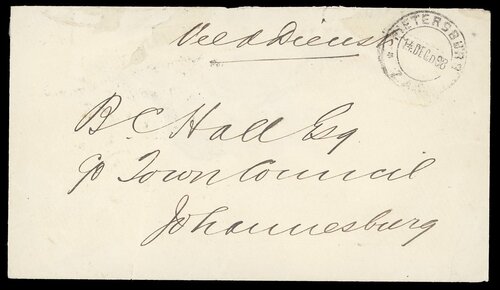 Veld Dienst
PIETERSBURG
14 DEC 98
Z.A.R.
B C Hall Esq
c/o Town Council
Johannesburg